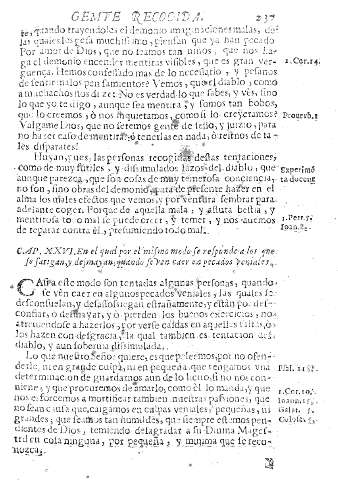 GENTE RECOGIDA. 237
te, quando trayendoles el demonio imaginaciones malas, de
las quales les pesa muchissimo, piensan que ya han pecado
Por amor de Dios, que no seamos tan unos, que nos ha-
ga el demonio encenderlas mentiras visibles, que es gran ver-
guença. Hemos confessado mas de lo necessario, y pesanos
de sentir malos pensamientos? Vemos, que el diablo, como
a muchachos nos dize: No es verdad lo que sabes, y vès, sino
lo que yo te digo, aunque sea mentira, y somos tan bobos,
que lo creemos, ò nos inquietamos, como si lo creyetamos?
Valgame Dios, que no seremos gente de seso, y juizio, para
no hazer caso de mentira, ò tenerlas en nada, ò reirnos de ta-
les disparates!
Huyan, pues, las personas recogidas destas tentaciones,
como de muy sutiles, y dissimulados lazos del diablo, que
aunque parezca, que son cosas de muy temerosa conciencia,
no son, sino obras del demonio, para de presente hazer en el
alma los malos efectos que vemos, y por ventura sembrar para
adelante coger. Porque de aquella mala, y astuta bestia, y
mentirosa todo mal se puede creer, y temer, y nos avemos
de reparar contra èl, presumiendo todo mal.
1.Cor.14.
Prouerb.1
Experimẽ
ta docent
1.Petr.5.
Joan.8.
CAP. XXVI. En el qual por el mismo modo se responde a los que
se fatigan, y desmayan, quando se vèn caer en pecados veniales.
CAsi a este modo son tentadas algunas personas, quando
se vèn caer en algunos pecados veniales, las quales se
desconsuelan, y desassossiegan estrañamente, y estàn por des-
confiar, ò desmayar, y ò pierden los buenos exercicios, no
atreuiendose a hazerlos, por verse caidas en aquellas faltas, ò
los hazen con desgracia, la qual tambien es tentacion del
diablo, y aun soberuia dissimulada.
Lo que nuestro Señor quiere, es que pelèemos, por no ofen-
derle, ni en grande culpa, ni en pequeña, que tengamos vna
determinacion de guardarnos aun de lo licito si no nos con-
uiene, y que procuremos de amarlo, como èl lo manda, y que
nos esforcemos a mortificar tambien nuestras passiones, que
no sean causa que caigamos en culpas veniales, pequeñas, ni
grandes, que seamos tan humildes, que siempre estemos pen-
dientes de Dios, temiendo desagradar a su Diuina Mages-
tad en cosa ninguna, por pequeña, y minima que se reco-
nozca.
1.Cor.10.
Ioann.15.
Galat. 5.
Colos. 3.